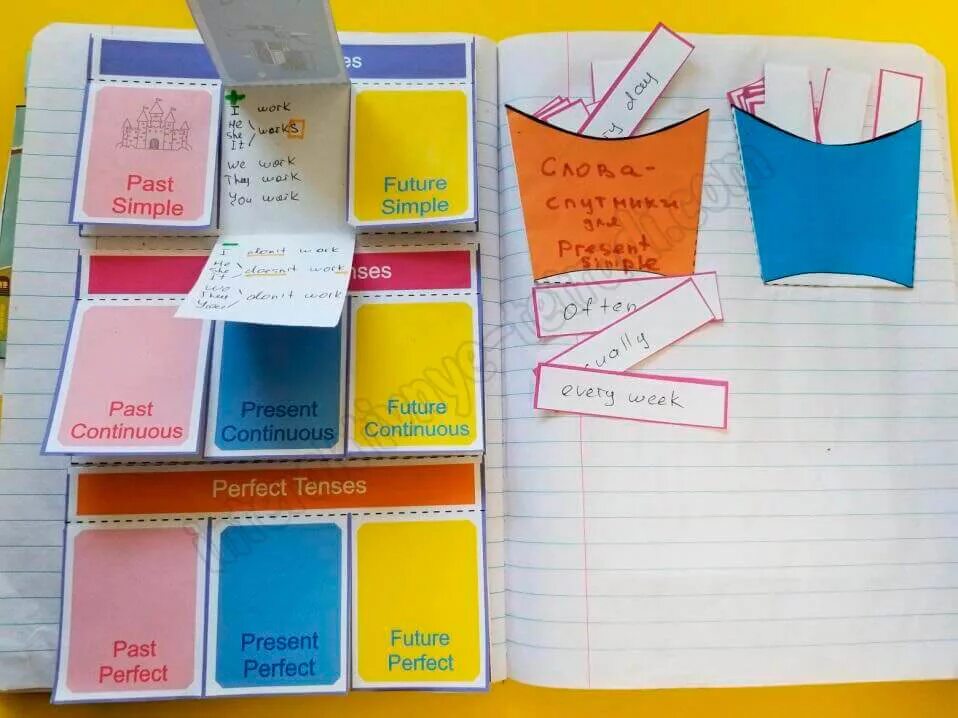 es
Past
Simple
+
I work
He
she works
It
We work
They work
You work
Future
Simple
-
I don't work
He
she doesn't work
It
We
They don't work
You
nses
Past
Continuous
Present
Continuous
Future
Continuous
Perfect Tenses
Past
Perfect
Present
Perfect
Future
Perfect
ry day
Слова-
спутники
для
Present
simple
often
ually
every week